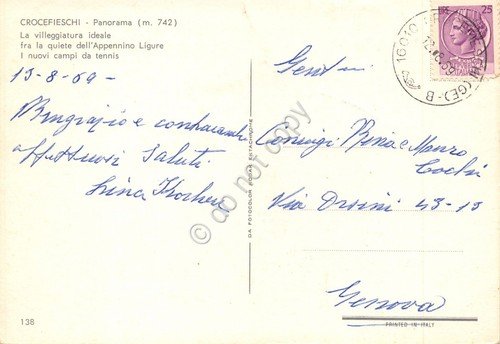 CROCEFIESCHI - Panorama (m. 742)
La villeggiatura ideale
fra la quiete dell'Appennino Ligure
I nuovi campi da tennis
13-8-69-
Ringrazio e contraccambio
affettuosi saluti
Lina
LIRE 25
16010
(GE)-B
Gent.mi
Coniugi Rina e Mauro
Via Orsini 43-15
Genova
DA FOTOCOLOR KODAK EKTACHROME
do not copy
138
PRINTED IN ITALY